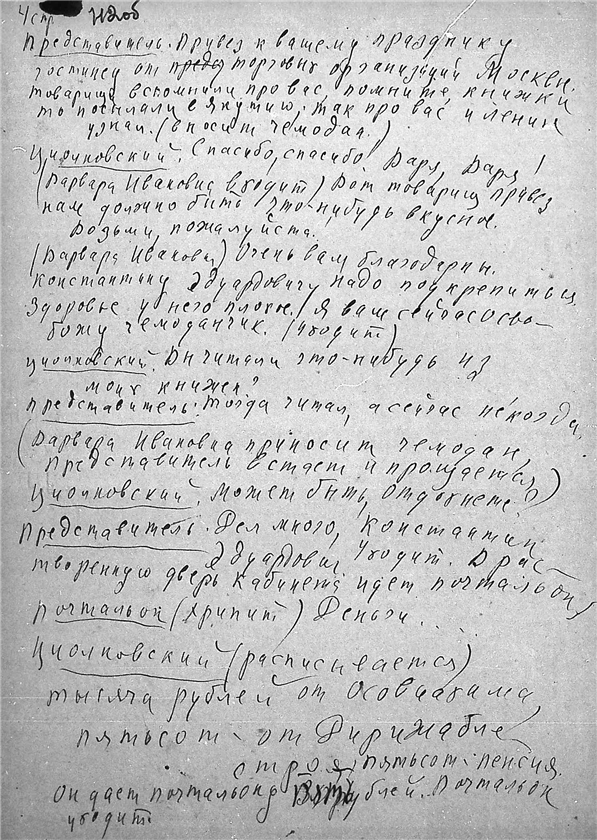 4 стр.
Представитель. Привез к вашему празднику
гостинец от торговых организаций Москвы.
Товарищи вспомнили про вас, помните, книжки
то посылали в Якутию, так про вас и Ленин
узнал. (вносит чемодан.)
Циолковский. Спасибо, спасибо! Варя, Варя!
(Варвара Ивановна входит) Вот товарищ привез
нам должно быть что-нибудь вкусное.
Возьми, пожалуйста.
(Варвара Ивановна) Очень вам благодарны.
Константину Эдуардовичу надо подкрепиться
Здоровье у него плохое. Я вам сейчас осво-
божу чемоданчик. (Уходит)
Циолковский. Вы читали что-нибудь из
моих книжек?
Представитель. Тогда читал, а сейчас некогда.
(Варвара Ивановна приносит чемодан,
представитель встает и прощается)
Циолковский. Может быть, отдохнете?
Представитель. Дел много, Константин
Эдуардович Уходит. В рас-
творенную дверь кабинета идет почтальон
Почтальон (хрипит) Деньги...
Циолковский (расписывается)
тысяча рублей от Осовиахима,
пятьсот - от Дирижабле
строя, пятьсот - пенсия.
Он дает почтальону рублей. Почтальон
уходит.